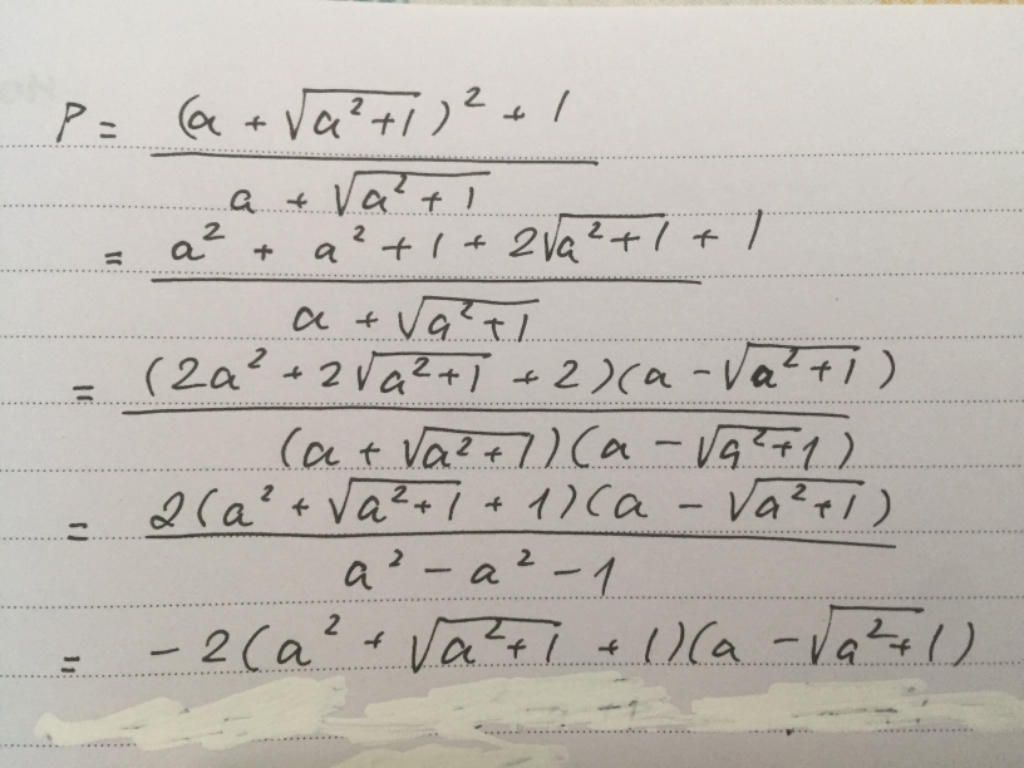 P = ((a + √(a² + 1))² + 1) / (a + √(a² + 1))
= (a² + a² + 1 + 2√(a² + 1) + 1) / (a + √(a² + 1))
= ((2a² + 2√(a² + 1) + 2)(a - √(a² + 1))) / ((a + √(a² + 1))(a - √(a² + 1)))
= (2(a² + √(a² + 1) + 1)(a - √(a² + 1))) / (a² - a² - 1)
= -2(a² + √(a² + 1) + 1)(a - √(a² + 1))